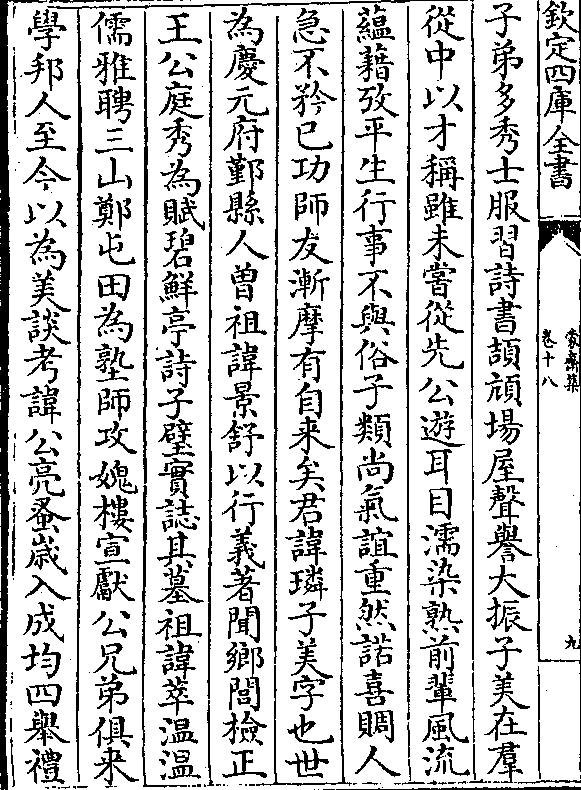 欽定四庫全書
蒙齋集
卷十八
九
子弟多秀士服習詩書頡頏場屋聲譽大振子美在羣
從中以才稱雖未嘗從先公遊耳目濡染熟前輩風流
蘊藉攷平生行事不與俗子類尚氣誼重然諾喜賙人
急不矜己功師友漸摩有自来矣君諱璘子美字也世
為慶元府鄞縣人曾祖諱景舒以行義著聞鄉閭檢正
王公庭秀為賦碧鮮亭詩子璧實誌其墓祖諱萃温温
儒雅聘三山鄭屯田為塾師攻媿樓宣獻公兄弟俱来
學邦人至今以為美談考諱公亮蚤嵗入成均四舉禮